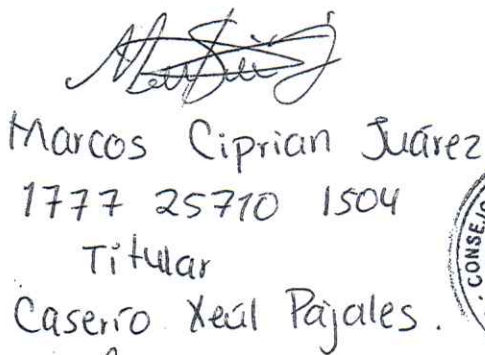 Marcos Ciprian Juárez
1777 25710 1504
Titular
Caserío Xeúl Pajales.
CONSEJO